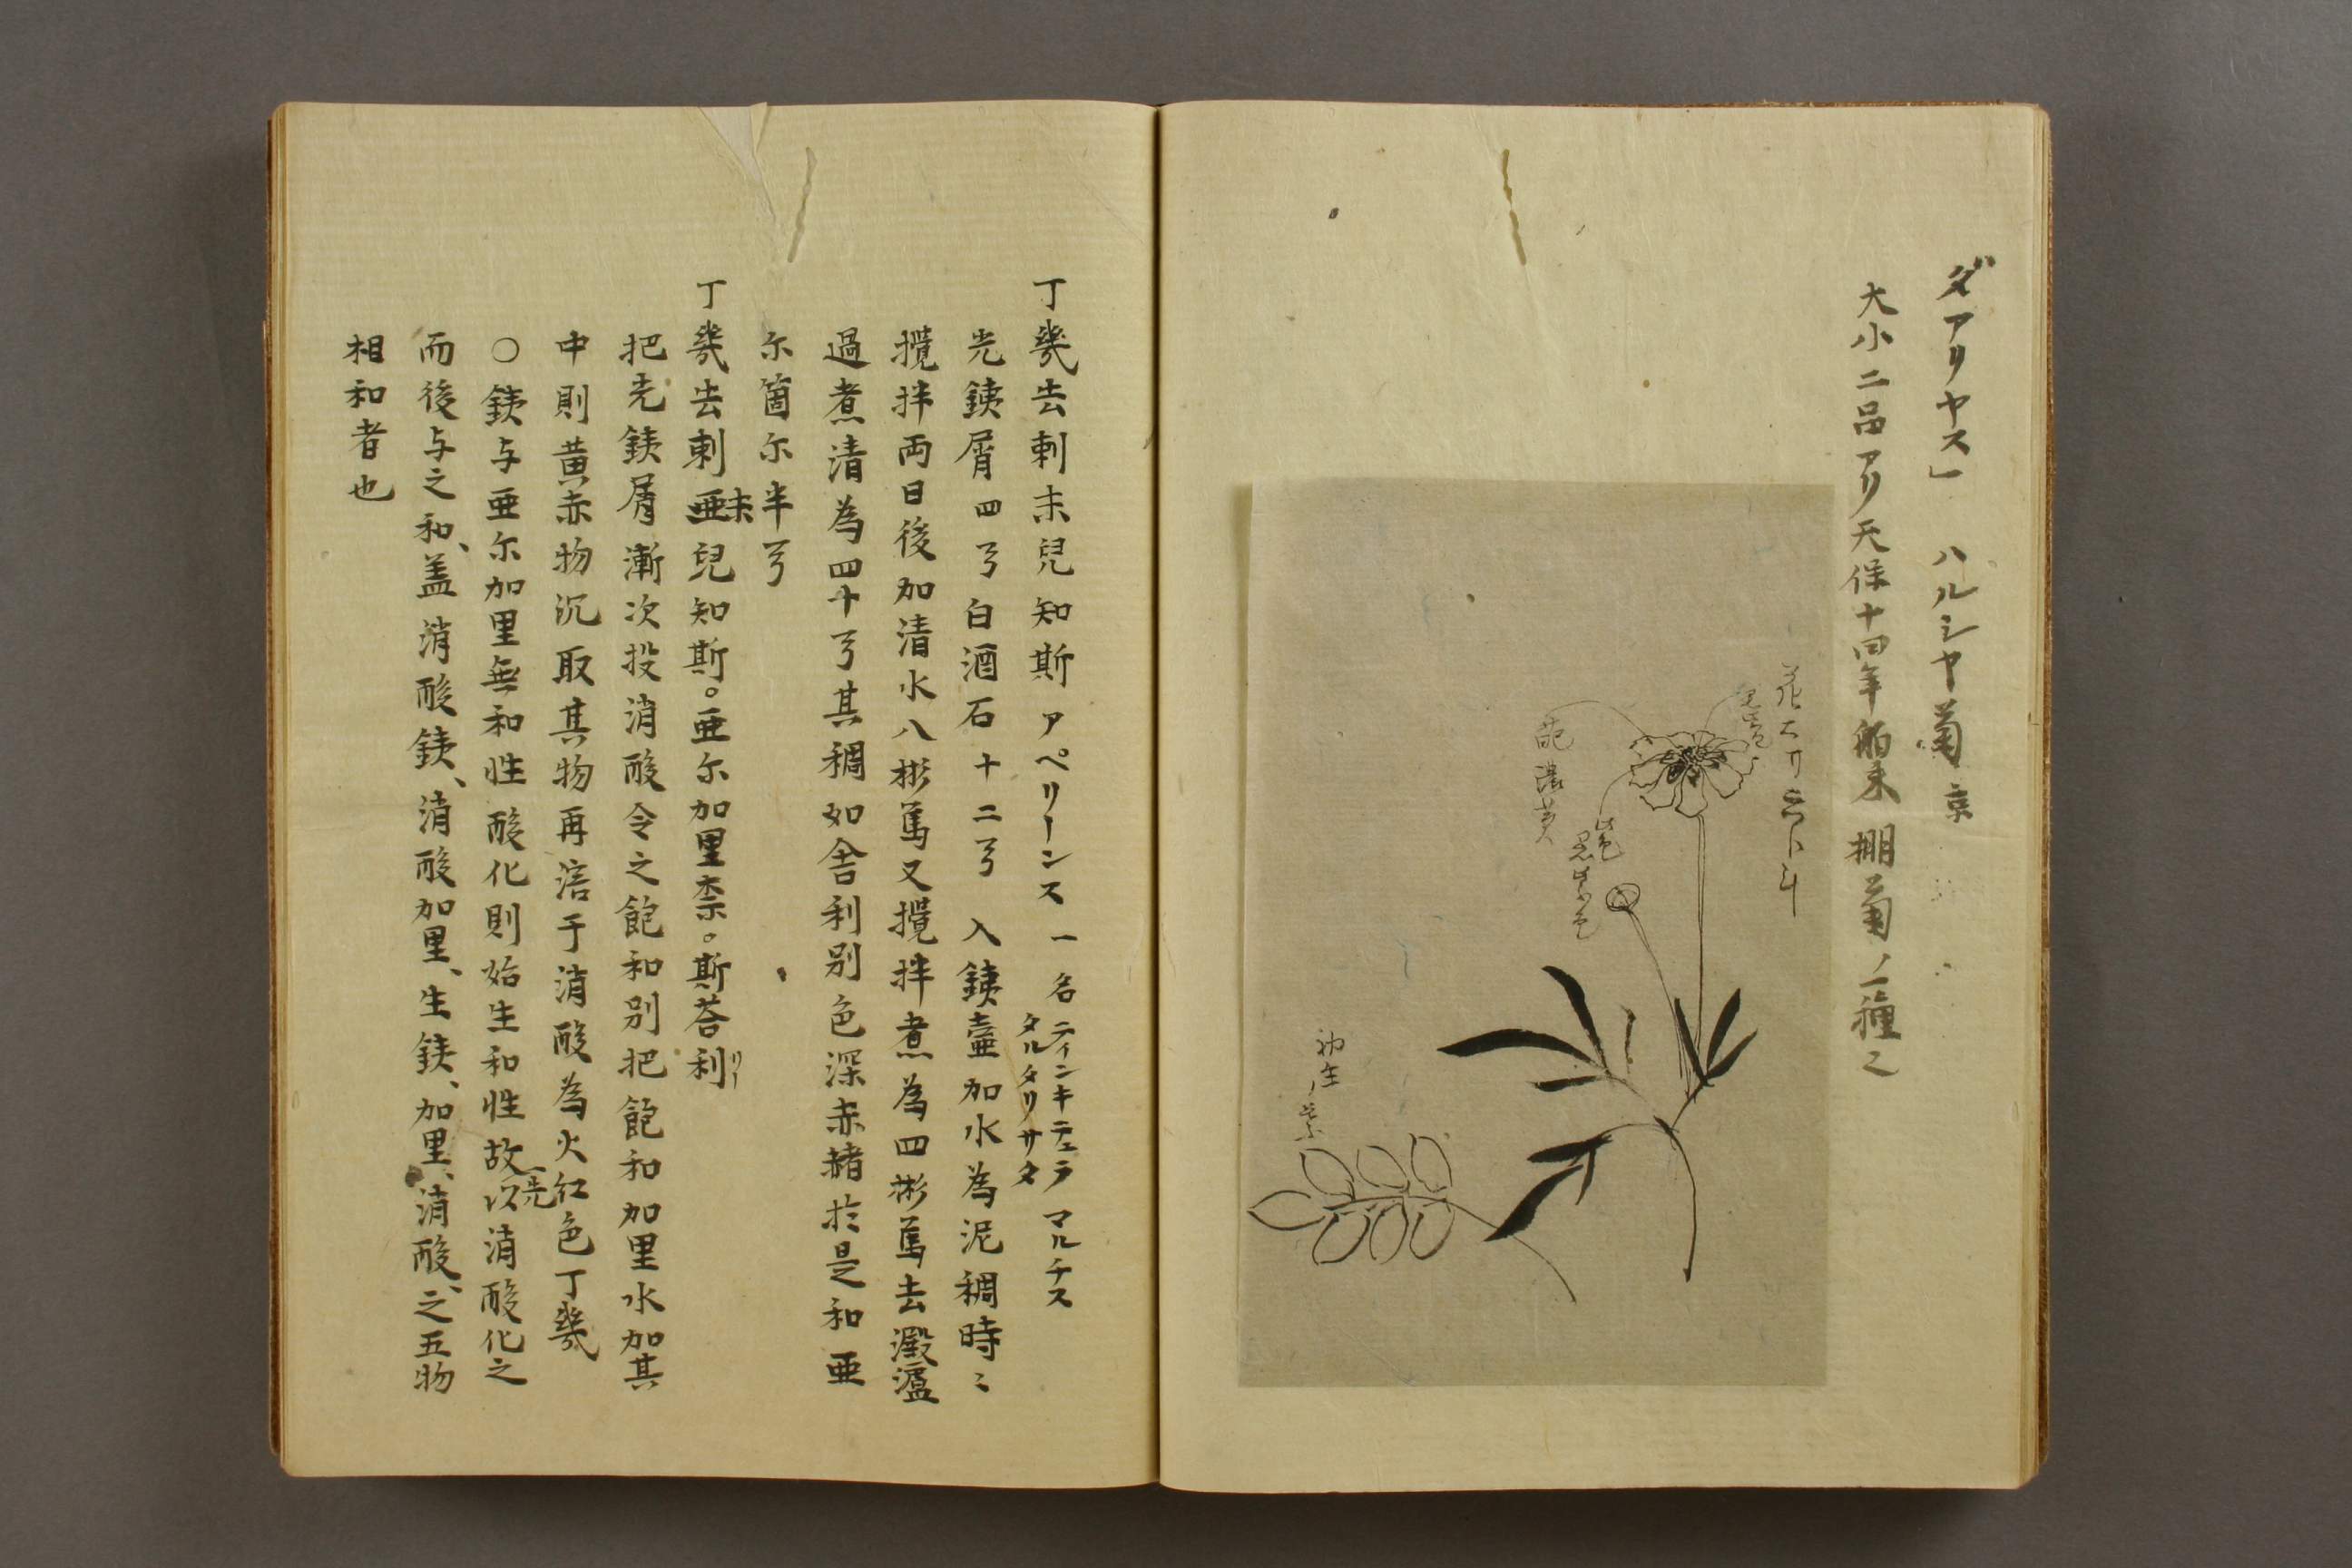 ダアリヤス」 ハルシヤ菊 京
大小二品アリ天保十四年舶来 棚菊ノ一種也
花大リ
色
葩濃黄
此色黒紫色
初生ノ葉
丁幾去剌末兒知斯 アペリーンス 一名 ティンキテュラ マルチス タルタリサタ
先銕屑四㪷白酒石十二㪷 入銕壷加水為泥稠時〻
攪拌両日後加清水八彬篤又攪拌煮為四彬篤去澱濾
過煮清為四十㪷其稠如舎利別色深赤赭於是和亜
尓箇尓半㪷
丁幾去剌亜末兒知斯。亜尓加里柰。斯荅利リー
把先銕屑漸次投消酸令之飽和別把飽和加里水加其
中則黄赤物沉取其物再溶于消酸為火紅色丁幾
○銕与亜尓加里無和性酸化則始生和性故先以消酸化之
而後与之和、盖消酸銕、消酸加里、生銕、加里、消酸、之五物
相和者也